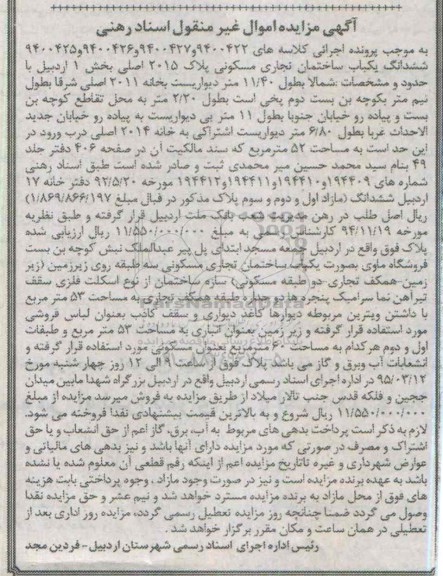 آگهی مزایده اموال غیر منقول اسناد رهنی
به موجب پرونده اجرائی کلاسه های ۹۴۰۰۴۲۲و۹۴۰۰۴۲۷و۹۴۰۰۴۲۶و۹۴۰۰۴۲۵
ششدانگ یکباب ساختمان تجاری مسکونی پلاک ۲۰۱۵ اصلی بخش ۱ اردبیل با
حدود و مشخصات :شمالا بطول ۱۱/۴۰ متر دیواریست بخانه ۲۰۱۱ اصلی شرقا بطول
نیم متر بکوچه بن بست دوم پخی است بطول ۲/۲۰ متر به محل تقاطع کوچه بن
بست و پیاده رو خیابان جنوبا بطول ۱۱ متر پی دیواریست به پیاده رو خیابان جدید
الاحداث غربا بطول ۶/۸۰ متر دیواریست اشتراکی به خانه ۲۰۱۴ اصلی درب ورود در
این حد است به مساحت ۵۲ مترمربع که سند مالکیت آن در صفحه ۴۰۶ دفتر جلد
۴۹ بنام سید محمد حسین میر محمدی ثبت و صادر شده است طبق اسناد رهنی
شماره های ۱۹۴۴۰۹و۱۹۴۴۱۰و۱۹۴۴۱۱و۱۹۴۴۱۲ مورخه ۹۲/۵/۲۰ دفتر خانه ۱۷
اردبیل ششدانگ (مازاد اول و دوم و سوم پلاک مذکور در قبال مبلغ ۱/۸۶۹/۸۶۶/۱۹۷)
ریال اصل طلب در رهن مدیریت شعب بانک ملت اردبیل قرار گرفته و طبق نظریه
مورخه ۹۴/۱۱/۱۹ کارشناس رسمی به مبلغ ۱۱/۵۵۰/۰۰۰/۰۰۰ ریال ارزیابی شده
پلاک فوق واقع در اردبیل جمعه مسجد ابتدای پل پیر عبدالملک نبش کوچه بن بست
فروشگاه ماوی بصورت یکباب ساختمان تجاری مسکونی سه طبقه روی زیرزمین (زیر
زمین-همکف تجاری-دو طبقه مسکونی) سازه ساختمان از نوع اسکلت فلزی سقف
تیرآهن نما سرامیک پنجره ها دو جداره طبقه همکف تجاری به مساحت ۵۳ متر مربع
با داشتن ویترین مربوطه دیوارها کاغذ دیواری و سقف کاذب بعنوان لباس فروشی
مورد استفاده قرار گرفته و زیر زمین بعنوان انباری به مساحت ۵۳ متر مربع و طبقات
اول و دوم هر کدام به مساحت ۶۰ مترمربع بعنوان مسکونی مورد استفاده قرار گرفته و
انشعابات آب وبرق و گاز می باشد پلاک فوق از ساعت ۹ الی ۱۲ روز چهار شنبه مورخ
۹۵/۰۳/۱۲ در اداره اجرای اسناد رسمی اردبیل واقع در اردبیل بزرگراه شهدا مابین میدان
ججین و فلکه قدس جنب تالار میلاد از طریق مزایده به فروش میرسد مزایده از مبلغ
۱۱/۵۵۰/۰۰۰/۰۰۰ ریال شروع و به بالاترین قیمت پیشنهادی نقدا فروخته می شود.
لازم به ذکر است پرداخت بدهی های مربوط به آب، برق، گاز اعم از حق انشعاب و یا حق
اشتراک و مصرف در صورتی که مورد مزایده دارای آنها باشد و نیز بدهی های مالیاتی و
عوارض شهرداری و غیره تاتاریخ مزایده اعم از اینکه رقم قطعی آن معلوم شده یا نشده
باشد به عهده برنده مزایده است و نیز در صورت وجود مازاد ، وجوه پرداختی بابت هزینه
های فوق از محل مازاد به برنده مزایده مسترد خواهد شد و نیم عشر و حق مزایده نقدا
وصول می گردد ضمنا چنانچه روز مزایده تعطیل رسمی گردد، مزایده روز اداری بعد از
تعطیلی در همان ساعت و مکان مقرر برگزار خواهد شد.
رئیس اداره اجرای اسناد رسمی شهرستان اردبیل- فردین مجد